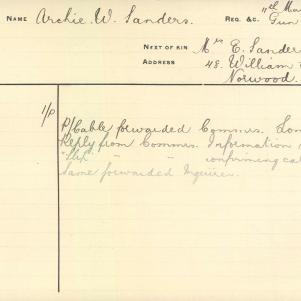 NAME Archie W. Sanders. REG. &C. 11th Ma
Gun
NEXT OF KIN Mrs E. Sander
ADDRESS 48. William
Norwood.
1/P
P/Cable forwarded Commrs. Lon
Reply from Commrs. Information
" " confirming ca
Same forwarded Inquirer.